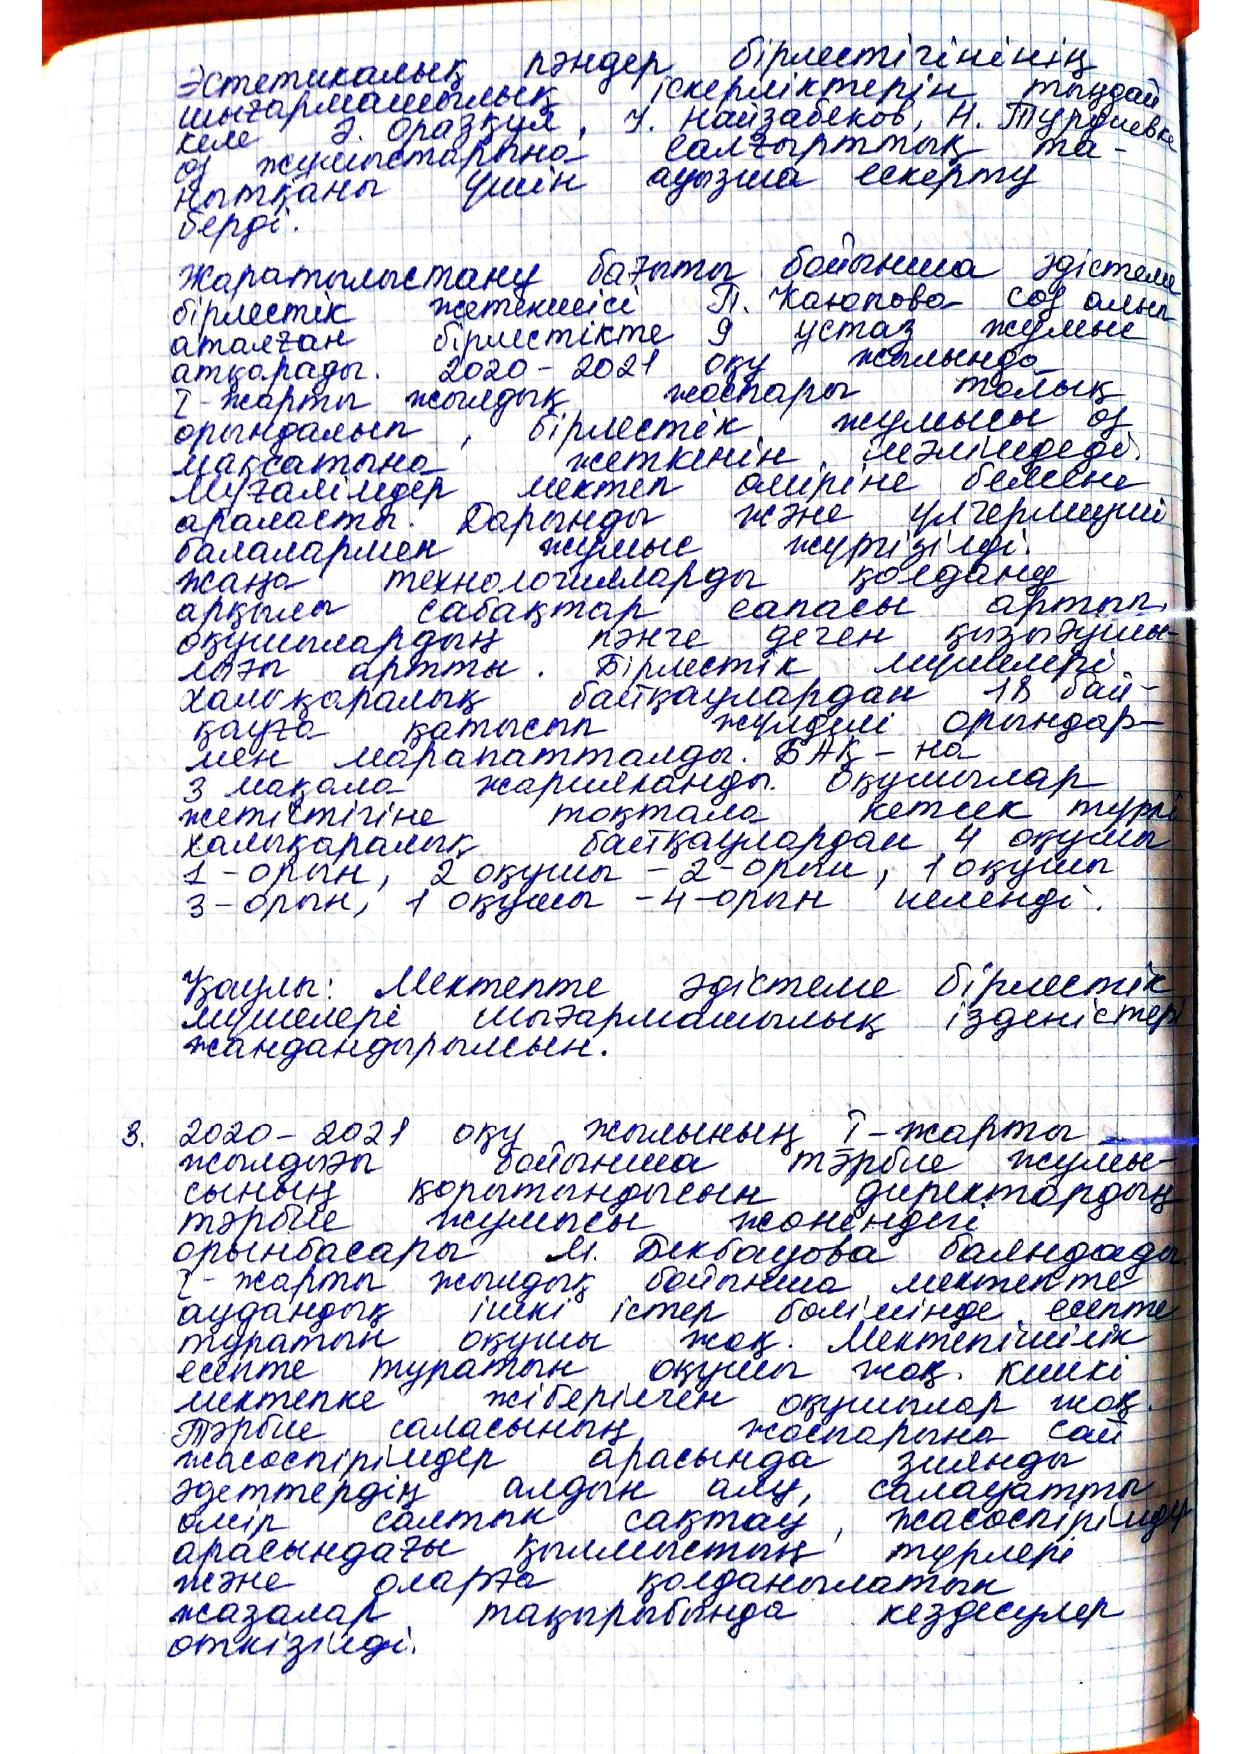 Эстетикалық пәндер бірлестігінінің
шығармашылық іскерліктерін тыңдай
келе Ә. Оразқул, У. Найзабеков, Н. Турдиевке
өз жұмыстарына салғырттық та-
нытқаны үшін ауызша ескерту
берді.
Жаратылыстану бағыты бойынша әдістеме
бірлестік жетекшісі П. Каюпова сөз алып
аталған бірлестікте 9 ұстаз жұмыс
атқарады. 2020-2021 оқу жылында
I-жарты жылдық жоспары толық
орындалып, бірлестік жұмысы өз
мақсатына жеткенін мәлімдеді.
Мұғалімдер мектеп өміріне белсене
араласты. Дарынды және үлгермеуші
балалармен жұмыс жүргізілді.
Жаңа технологияларды қолдану
арқылы сабақтар сапасы артып,
оқушылардың пәнге деген қызығушы-
лығы артты. Бірлестік мүшелері
халықаралық байқаулардан 18 бай-
қауға қатысып жүлделі орындар-
мен марапатталды. БАҚ-на
3 мақала жарияланды. Оқушылар
жетістігіне тоқтала кетсек түрлі
халықаралық байқаулардан 4 оқушы
1-орын, 2 оқушы-2-орын, 1 оқушы
3-орын, 1 оқушы-4-орын иеленді.
Қаулы: Мектепте әдістеме бірлестік
мүшелері шығармашылық ізденістері
жандандырылсын.
3. 2020-2021 оқу жылының I-жарты
жылдығы бойынша тәрбие жұмы-
сының қорытындысын директордың
тәрбие жұмысы жөніндегі
орынбасары М. Бекбауова баяндады.
I-жарты жылдық бойынша мектепте
аудандық ішкі істер бөлімінде есепте
тұратын оқушы жоқ. Мектепішілік
есепте тұратын оқушы жоқ. Кешкі
мектепке жіберілген оқушылар жоқ.
Тәрбие саласының жоспарына сай
жасөспірімдер арасында зиянды
әдеттердің алдын алу, салауатты
өмір салтын сақтау, жасөспірімдер
арасындағы қылмыстың түрлері
және оларға қолданылатын
жазалар тақырыбында кездесулер
өткізілді.